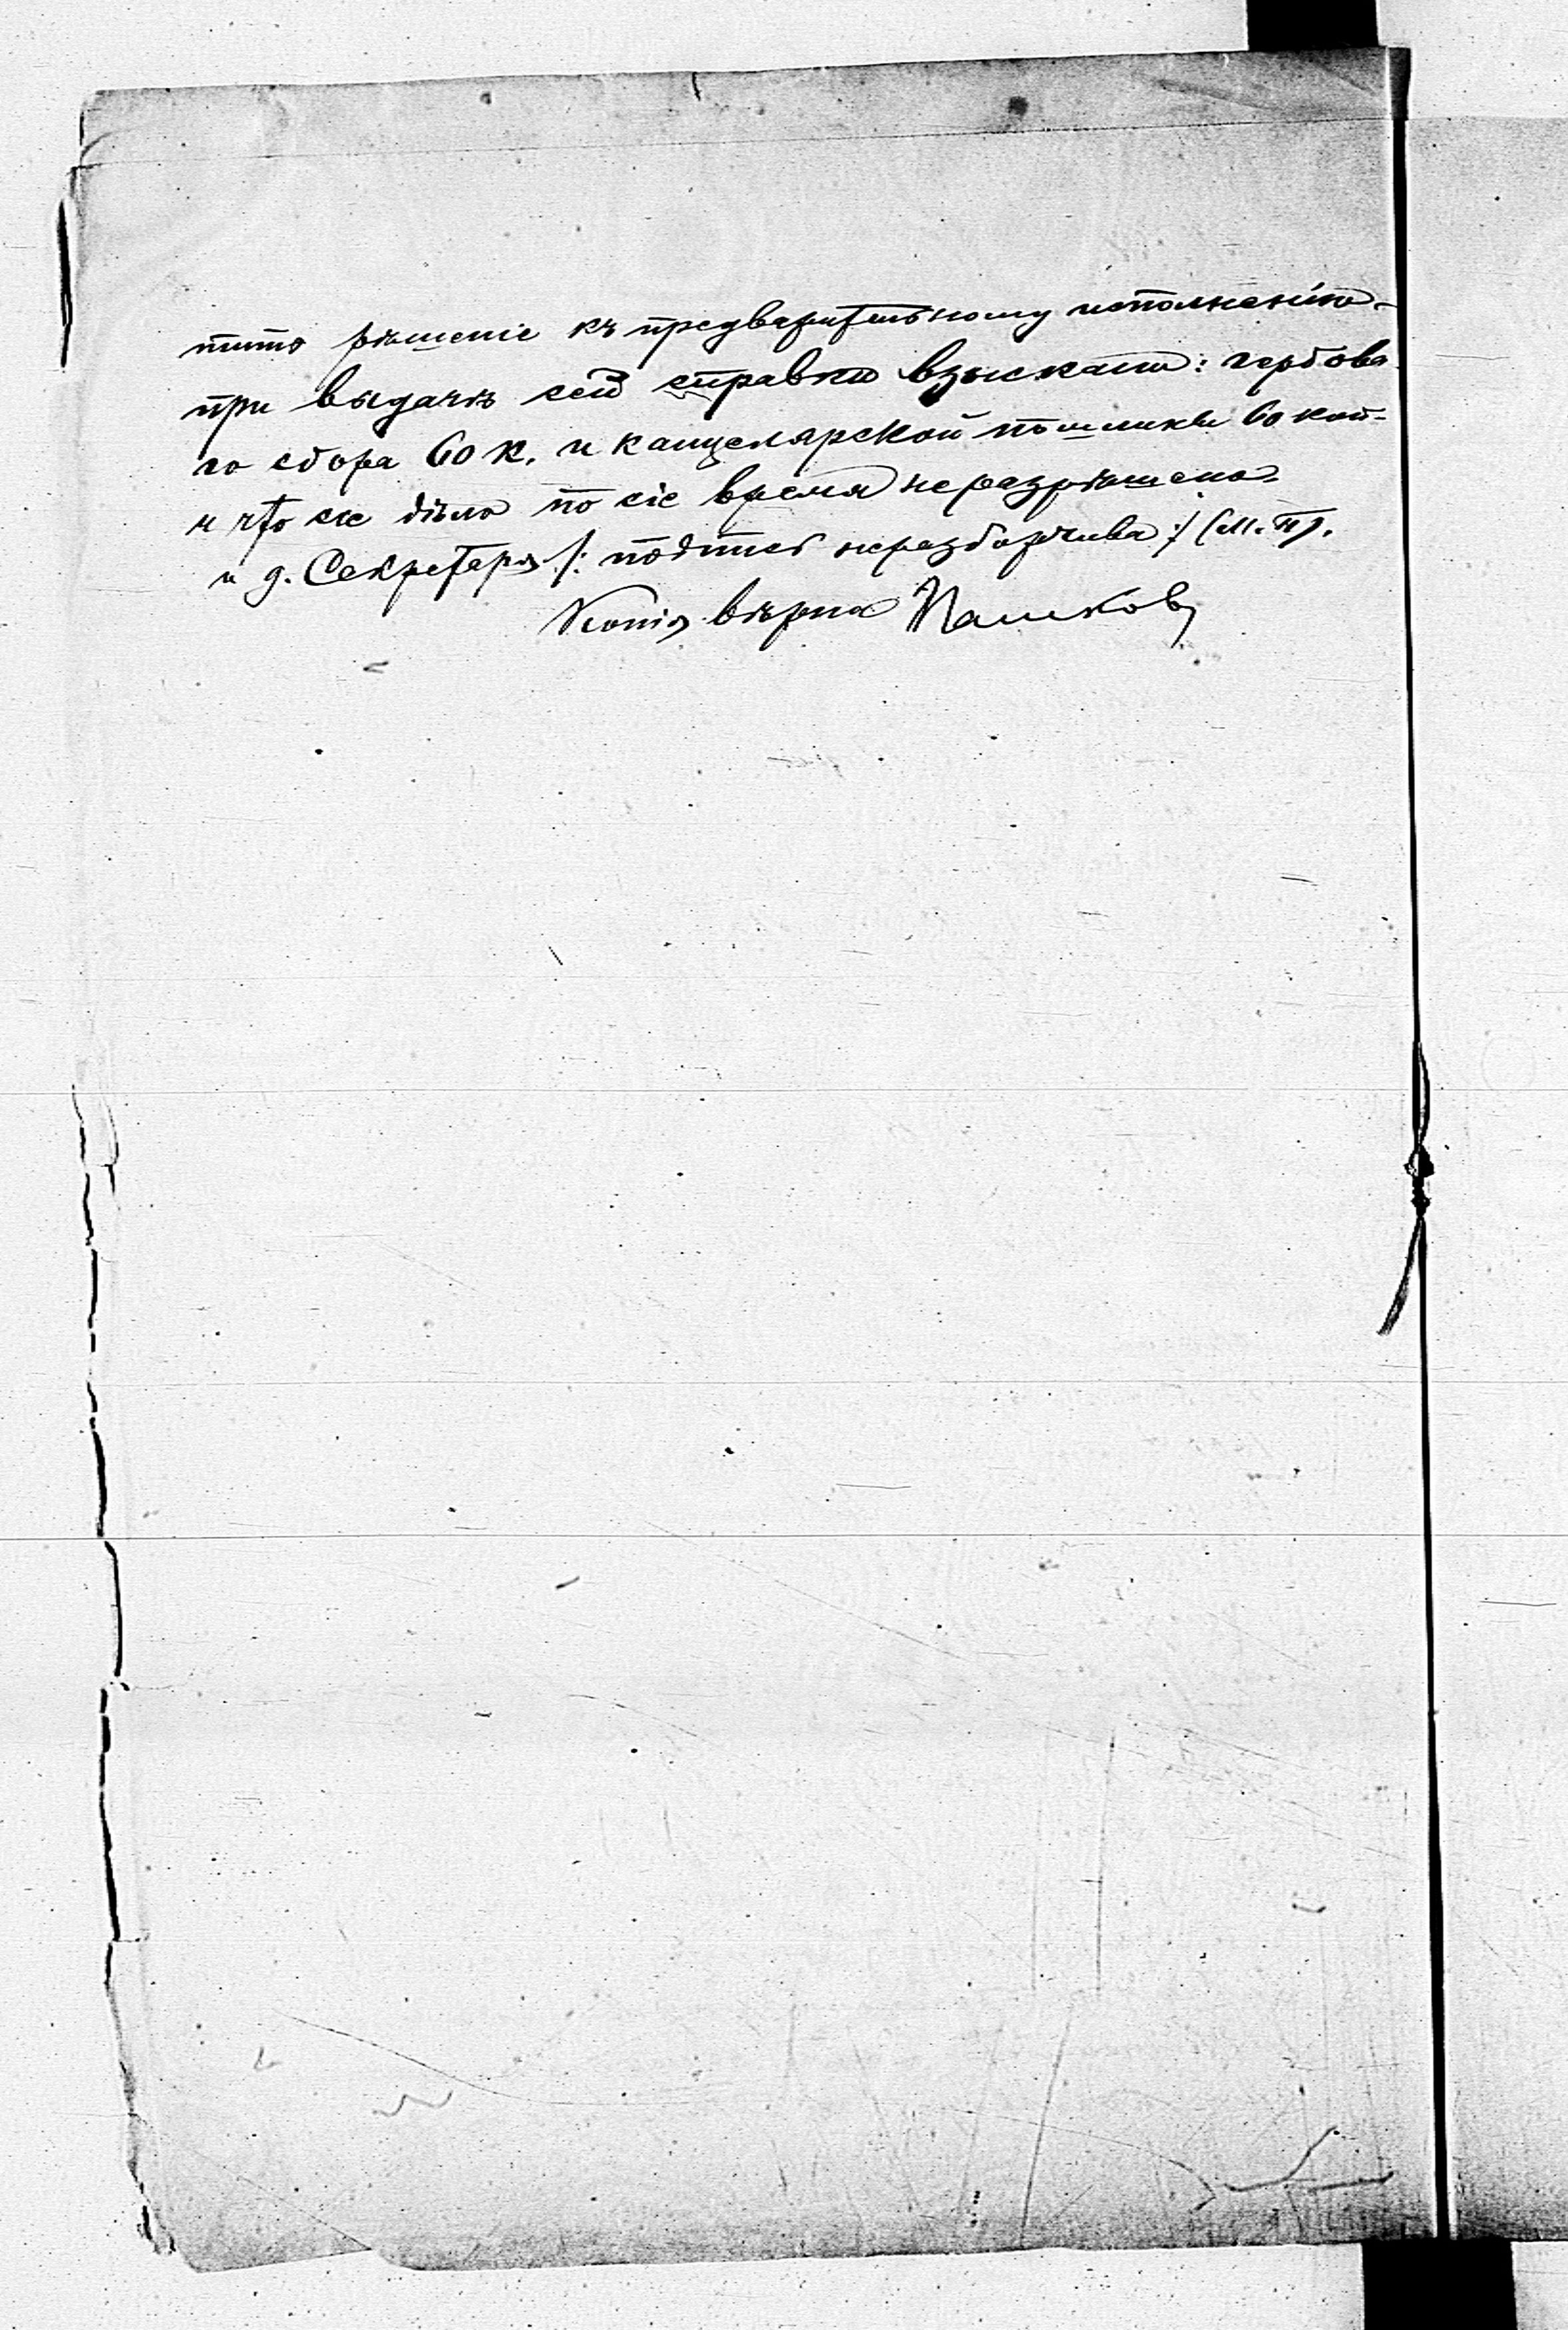 тить рѣшеніе къ предварительному исполненію.
при выдачѣ сей справки взыскано: гербова
го сбора 60 к. и канцелярской пошлины 60 коп.
и что сіе дѣло по сіе время неразрѣшено.
и д. Секретаря /: подпись неразборчива :/ (М. П).
Копія вѣрна Пашковъ